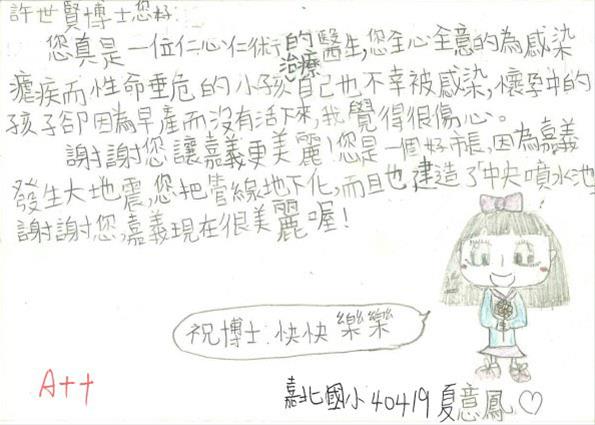 許世賢博士您好:
您真是一位仁心仁術的醫生,您全心全意的為感染
治療
瘧疾而性命垂危的小孩,自己也不幸被感染,懷孕中的
孩子卻因為早產而沒有活下來,我覺得很傷心。
謝謝您讓嘉義更美麗!您是一個好市長,因為嘉義
發生大地震,您把管線地下化,而且也建造了「中央噴水池」
謝謝您,嘉義現在很美麗喔!
祝博士:快快樂樂
A++
嘉北國小40419夏意鳳♡